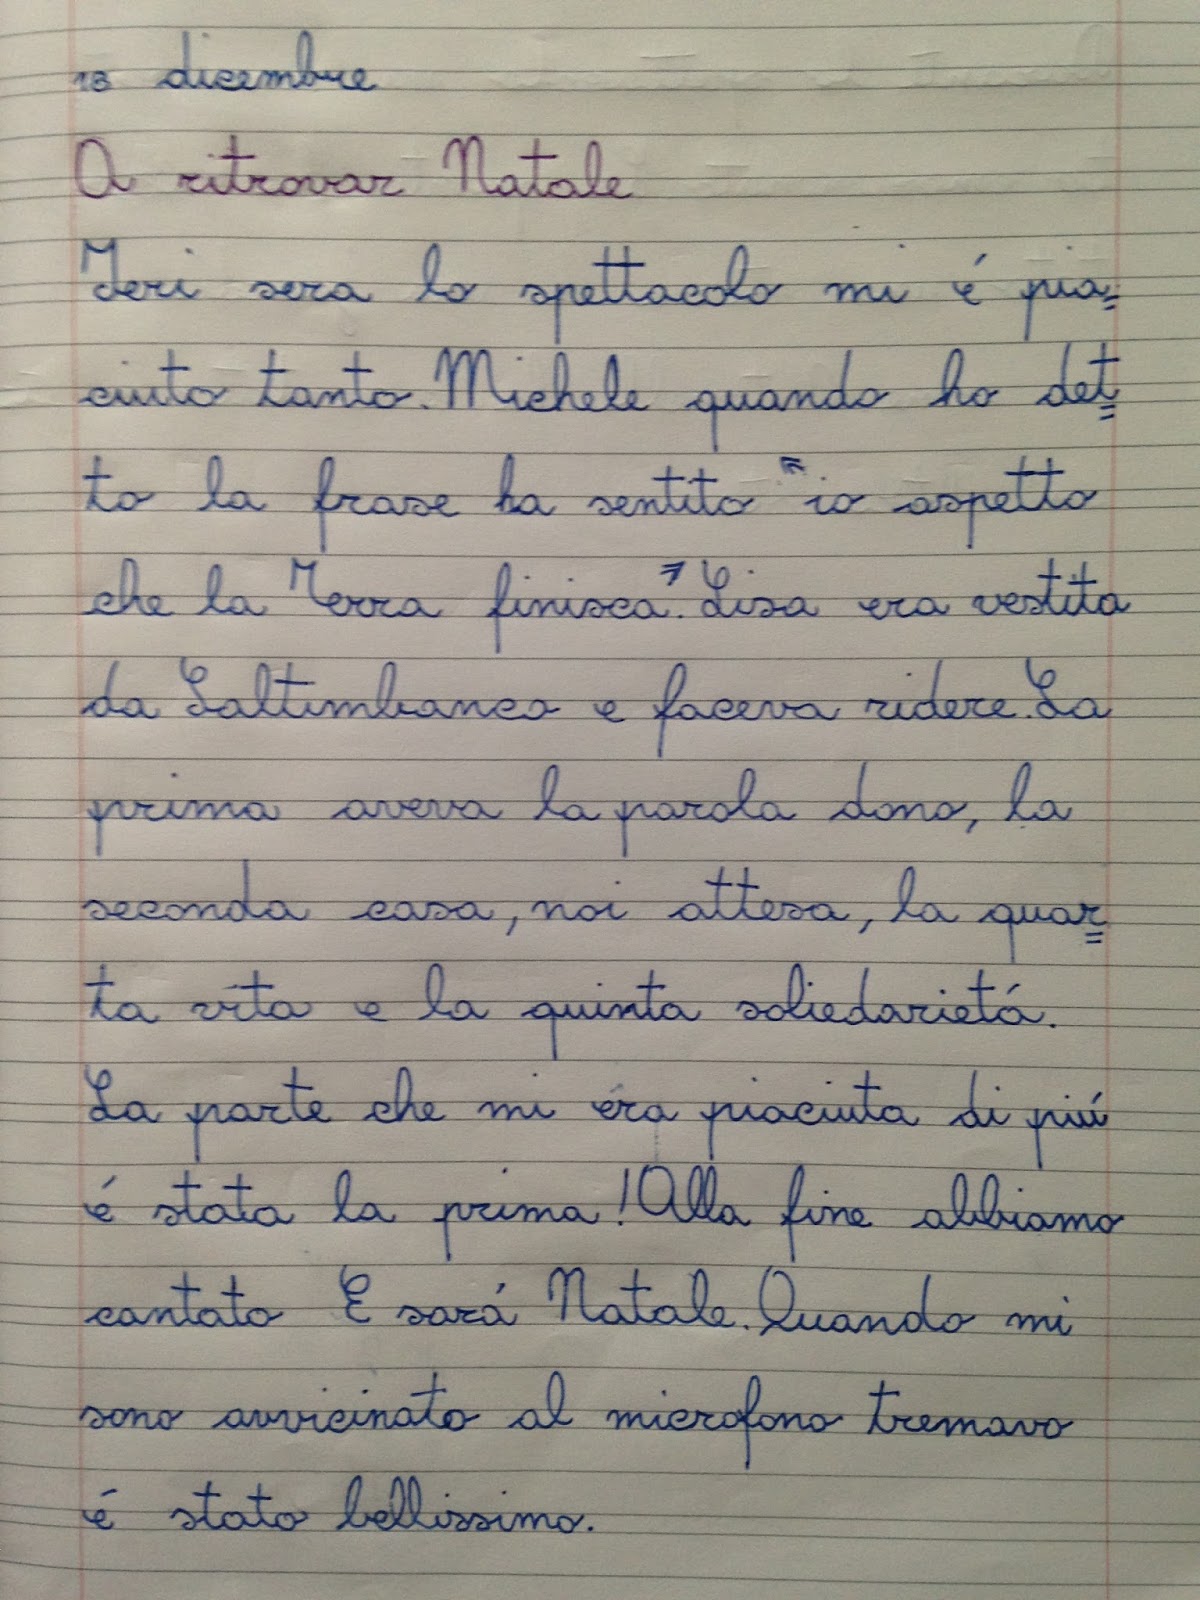 13 dicembre
A ritrovar Natale
Ieri sera lo spettacolo mi é pia=
ciuto tanto. Michele quando ho det=
to la frase ha sentito "io aspetto
che la Terra finisca". Lisa era vestita
da Saltimbanco e faceva ridere. La
prima aveva la parola dono, la
seconda casa, noi attesa, la quar=
ta vita e la quinta soliedarietá.
La parte che mi éra piaciuta di piú
é stata la prima! Alla fine abbiamo
cantato E sará Natale. Quando mi
sono avvicinato al microfono tremavo
é stato bellissimo.